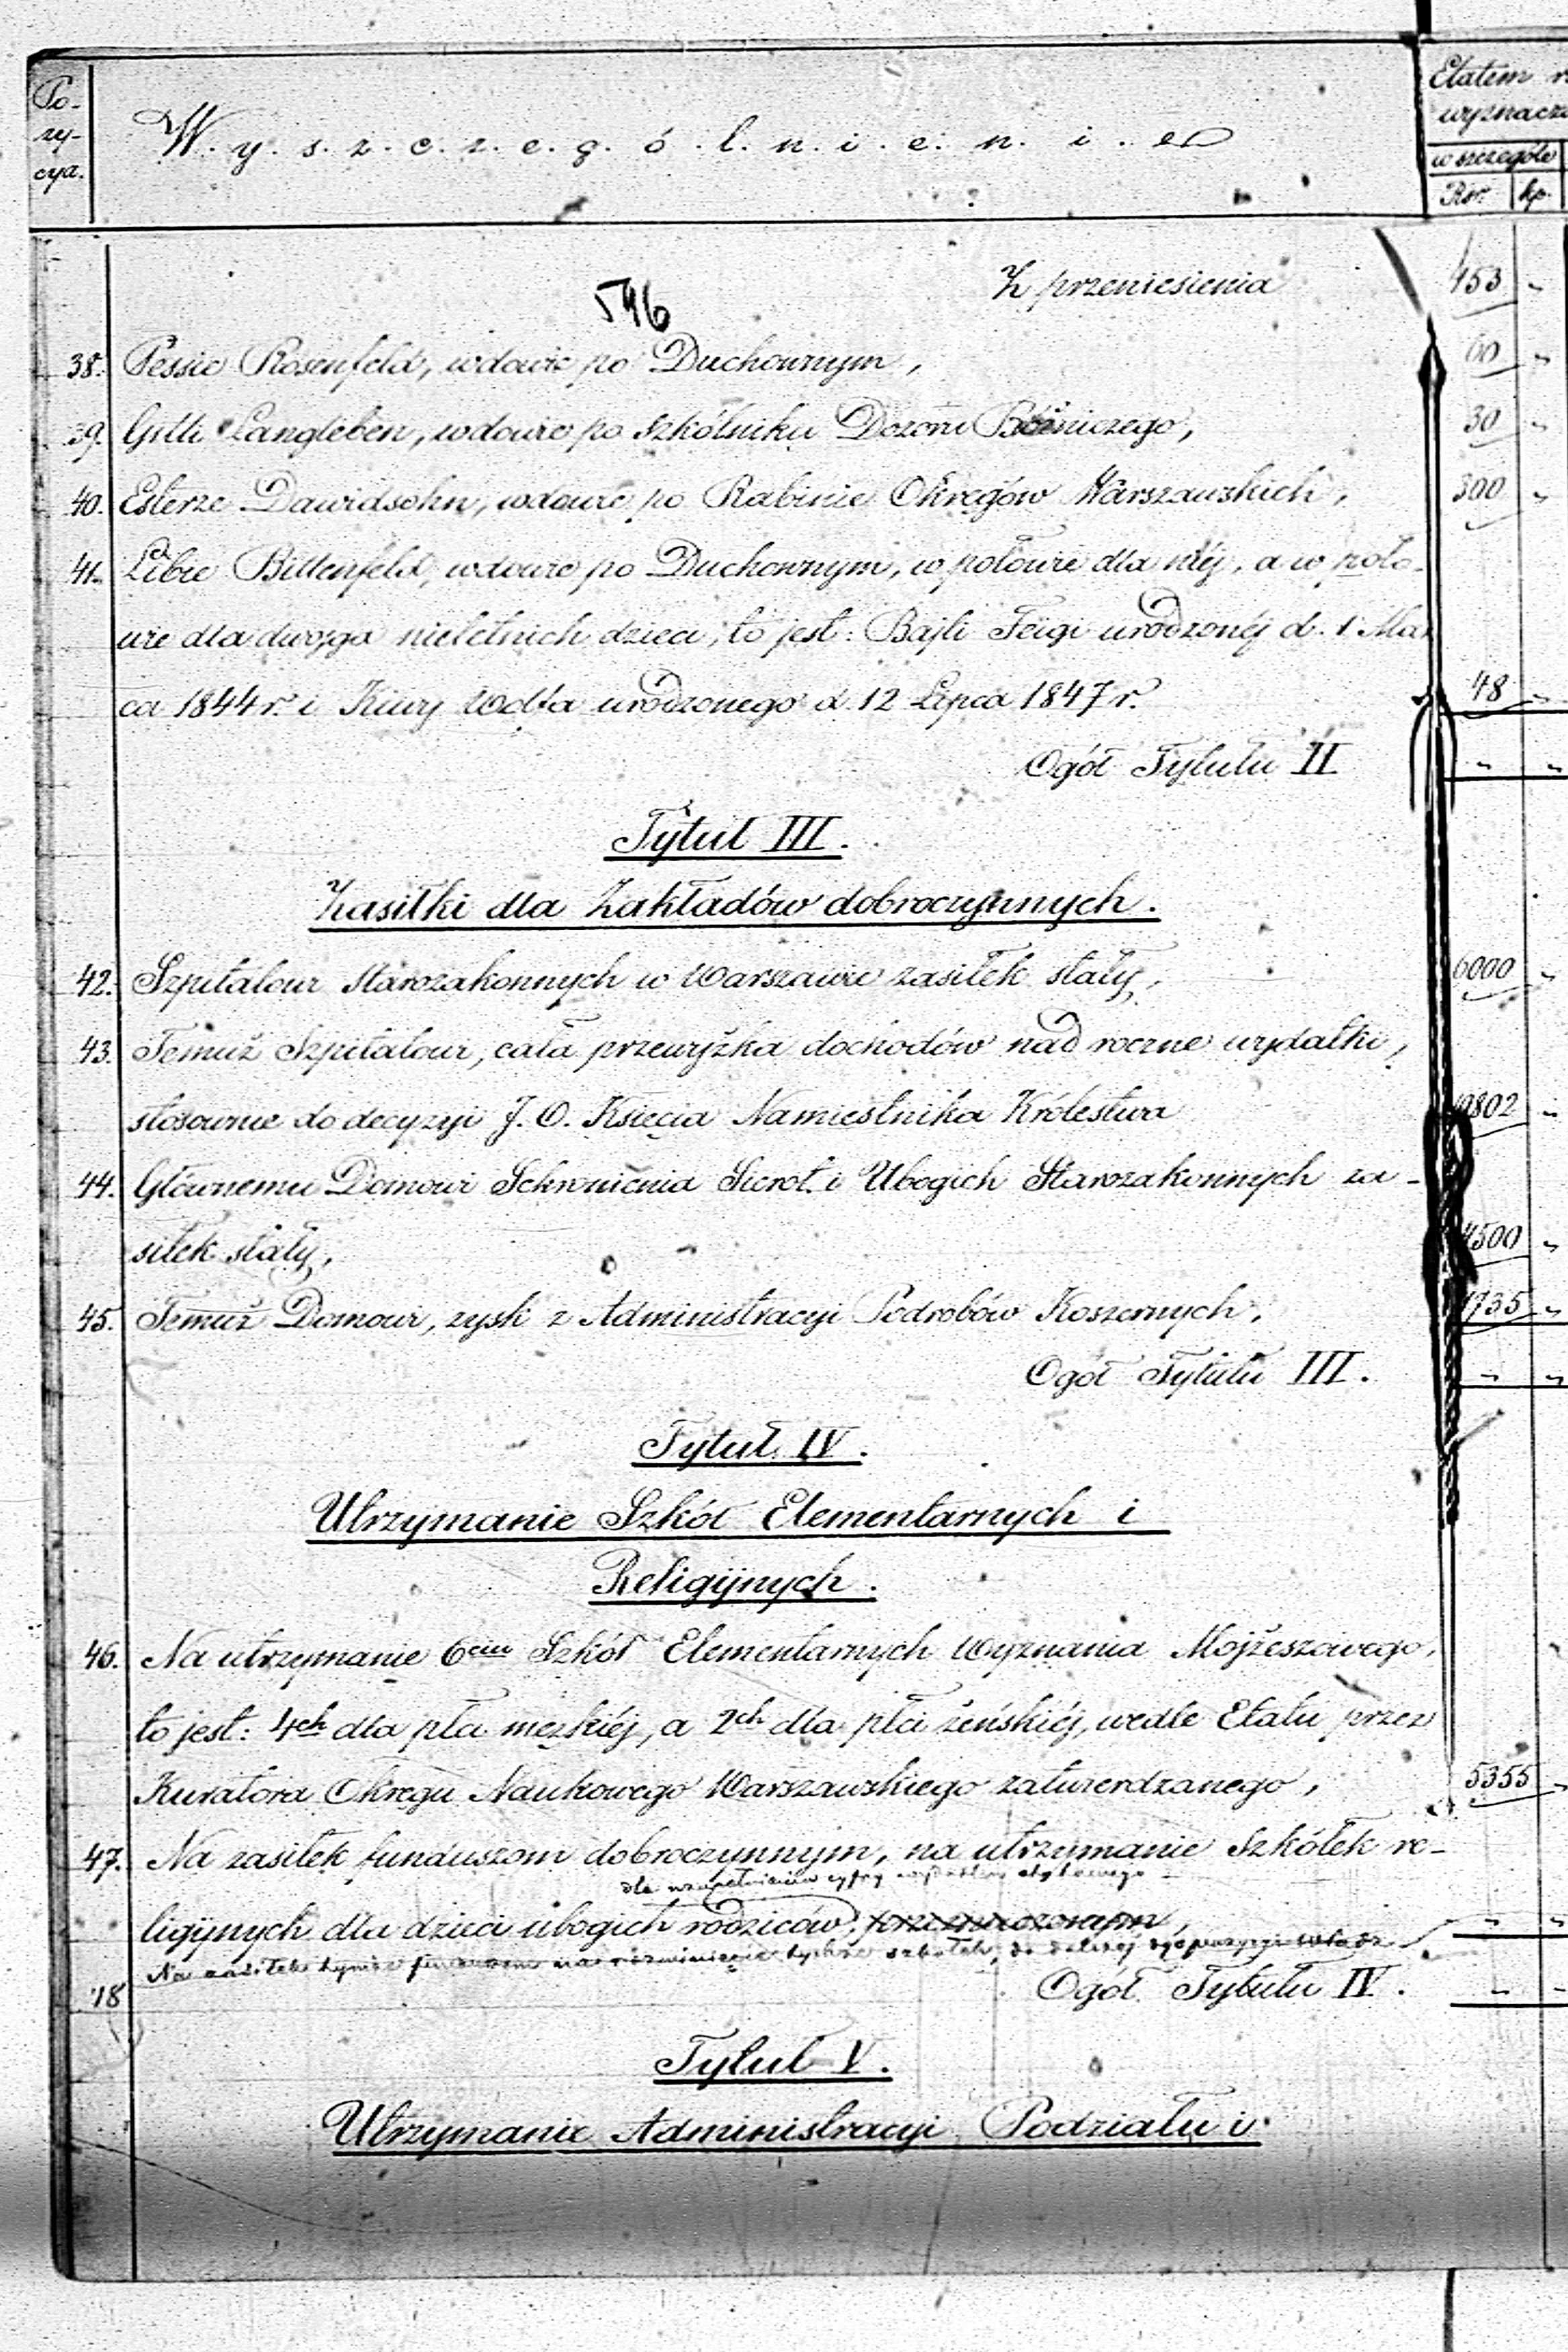 Po-
zy-
cya.
W. y. s. z. c. z. e. g. ó. l. n. i. e. n. i. e
Etatem
wyznacz
w szczególe
Rsr. kp.
Z przeniesienia 453 "
546
38. Pessie Rosenfeld, wdowie po Duchownym, 60 "
39. Gitli Langleben, wdowie po szkólniku Dozoru Bóżniczego, 30 "
40. Esterze Dawidsohn, wdowie po Rabinie Okręgów Warszawskich, 300 "
41. Libie Bittenfeld, wdowie po Duchownym, w połowie dla niéj, a w poło-
wie dla dwojga nieletnich dzieci, to jest: Bajli Feigi urodzonéj d. 1 Mar
ca 1844 r. i Kiwy Wolfa urodzonego d. 12 Lipca 1847 r. 48 "
Ogół Tytułu II " "
Tytuł III.
Zasiłki dla Zakładów dobroczynnych.
42. Szpitalowi Starozakonnych w Warszawie zasiłek stały, 6000 "
43. Temuż Szpitalowi, cała przewyżka dochodów nad roczne wydatki,
stosownie do decyzyi J. O. Księcia Namiestnika Królestwa 9802 "
44. Głównemu Domowi Schronienia Sierot i Ubogich Starozakonnych za-
siłek stały, 4500 "
45. Temuż Domowi, zysk z Administracyi Podrobów Koszernych, 1735 "
Ogół Tytułu III. " "
Tytuł IV.
Utrzymanie Szkół Elementarnych i
Religijnych.
46. Na utrzymanie 6ciu Szkół Elementarnych Wyznania Mojżeszowego,
to jest: 4ch dla płci męzkiéj, a 2ch dla płci żeńskiéj, wedle Etatu przez
Kuratora Okręgu Naukowego Warszawskiego zatwierdzanego, 5355 "
47. Na zasiłek funduszom dobroczynnym, na utrzymanie Szkółek re-
dla uzupełnienia cyfry wydatków etatowego
ligijnych dla dzieci ubogich rodziców, " "
Na zasiłek tymże funduszom na rozwinięcie tychże szkółek, do dalszéj dyspozycyi władz
48 Ogół Tytułu IV. " "
Tytuł V.
Utrzymanie Administracyi Podziału i